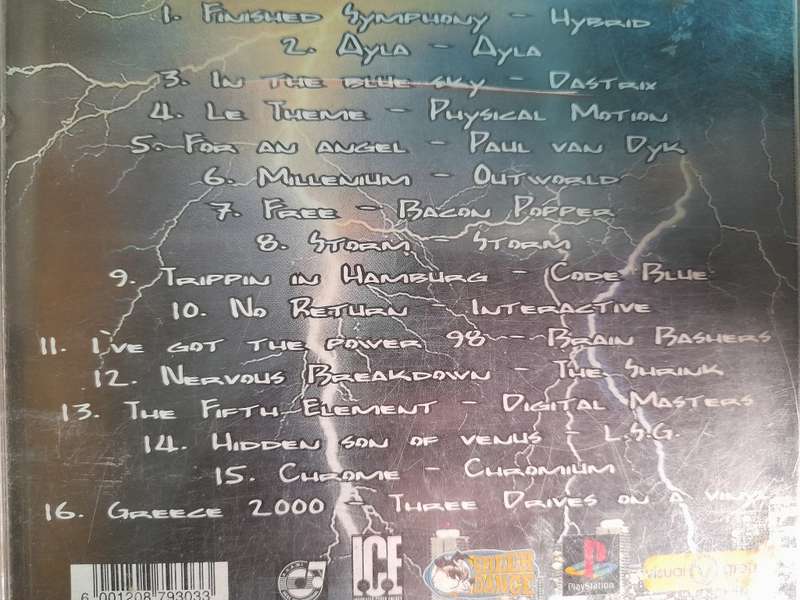 1. Finished Symphony - Hybrid
2. Ayla - Ayla
3. In the blue sky - Dastrix
4. Le Theme - Physical Motion
5. For an angel - Paul van Dyk
6. Millenium - Outworld
7. Free - Bacon Popper
8. Storm - Storm
9. Trippin in Hamburg - Code Blue
10. No Return - Interactive
11. I've got the power 98 - Brain Bashers
12. Nervous Breakdown - The Shrink
13. The Fifth Element - Digital Masters
14. Hidden son of venus - L.S.G.
15. Chrome - Chromium
16. Greece 2000 - Three Drives on a vinyl
ICE
DANCE
PlayStation
visual
6 001208 793033